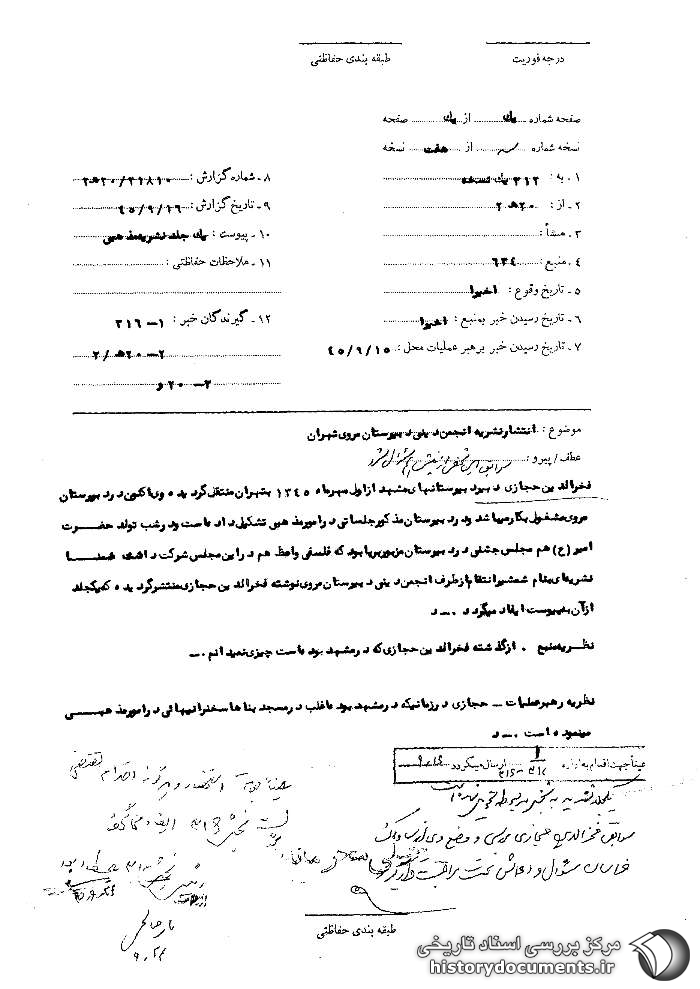 درجه فوریت
طبقه بندی حفاظتی
صفحه شماره يك از يك صفحه
نسخه شماره از هفت نسخه
۱ـ به : ۳۱۲ يك نسخه
۲ـ از : ۲۰هـ ۲
۳ـ منشأ :
۴ـ منبع : ۶۳۴
۵ـ تاریخ وقوع : اخيرا
۶ـ تاریخ رسیدن خبر بمنبع : اخيرا
۷ـ تاریخ رسیدن خبر برهبر عملیات محل : ۴۵/۹/۱۵
۸ـ شماره گزارش : ۲۰/۳۱۸۱۰هـ۲
۹ـ تاریخ گزارش : ۴۵/۹/۱۶
۱۰ـ پیوست : يك جلد نشريه مذهبی
۱۱ـ ملاحظات حفاظتی :
۱۲ـ گیرندگان خبر : ۱ـ ۳۱۶
۲ـ ۲۰هـ /۲
۳ـ ۲۰ و
موضوع : انتشار نشريه انجمن دينی دبيرستان مروی تهران
عطف / پیرو :
فخرالدين حجازی دبير دبيرستانهای مشهد از اول مهرماه ۱۳۴۵ بتهران منتقل گرديده وی اكنون در دبيرستان
مروی مشغول بكار ميباشد و در دبيرستان مذكور جلساتی در امور مذهبی تشكيل داده است و در شب تولد حضرت
امير (ع) هم مجلس جشنی در دبيرستان مزبور برپا بود كه فلسفی واعظ هم در اين مجلس شركت داشته ضمنا
نشريه‌ای بنام شمشير انتقام از طرف انجمن دينی دبيرستان مروی نوشته فخرالدين حجازی منتشر گرديده كه يكجلد
از آن به پيوست ايفاد ميگردد . ـ د
نظريه منبع . از گذشته فخرالدين حجازی كه در مشهد بوده است چيزی نميدانم . ـ
نظريه رهبر عمليات ـ حجازی در زمانيكه در مشهد بوده اغلب در مسجد بناها سخنرانيهائی در امور مذهبی
مينموده است . ـ د
عیناً جهت اقدام به اداره ۳۱۶ ارسال میگردد
یکجلد نشریه به بخش مربوطه تحویل شده است
سوابق فخرالدین حجازی بررسی و وضع وی از ساواک
خراسان سئوال و اعمالش تحت مراقبت قرار گیرد
بخش ۳۱۳
۹،۲۴
طبقه بندی حفاظتی
مرکز بررسی اسناد تاریخی
historydocuments.ir